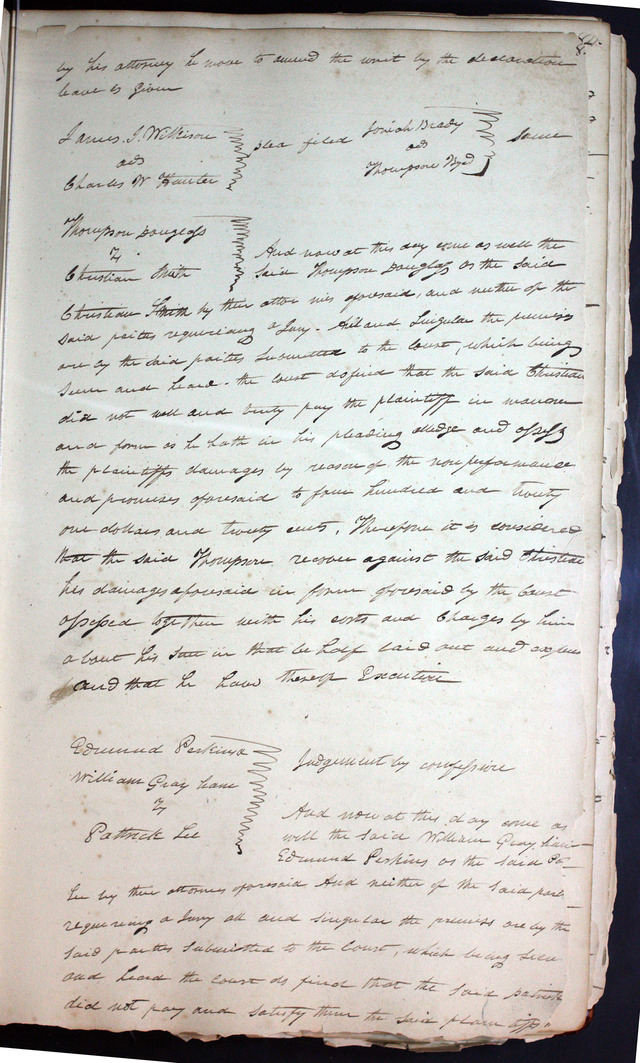 by his attorney he move to amend the writ by the declaration
leave is given
James J. Wilkison
ads
Charles W Hunter
plea filed
Josiah Brady
ads
Thompson Byrd
Same
Thompson Douglass
Christian Smith
And now at this day come as well the
said Thompson Douglass as the said
Christian Smith by their attor nies aforesaid, and neither of the
said parites requeriang a Jury - All and Singular the premises
are by the said parites Submitted to the Court, which being
seen and heard - the court do find that the said Christian
did not well and truly pay the plaintiff in manner
and form as he hath in his pleading alledge and assess
the plaintiffs damages by reason of the nonperformance
and promises aforesaid to four hundred and twenty
one dollars and twenty cents, Therefore it is considered
that the said Thompson recover against the said Christian
his damages aforesaid in form aforesaid by the Court
assessed together with his costs and Charges by him
about his suit in that be half laid out and
and that he have thereof Execution
Edmund Perkins
William Gray ham
Pattrick Lee
Judgement by confession
And now at this day come as
well the said William Gray ham
Edmund Perkins as the said
Lee by their attornies aforesaid And neither of the said
requering a Jury all and singular the premises are by the
said parties submitted to the Court, which being seen
and heard the court do find that the said patrick
did not pay and satisfy them the said plain tiffs